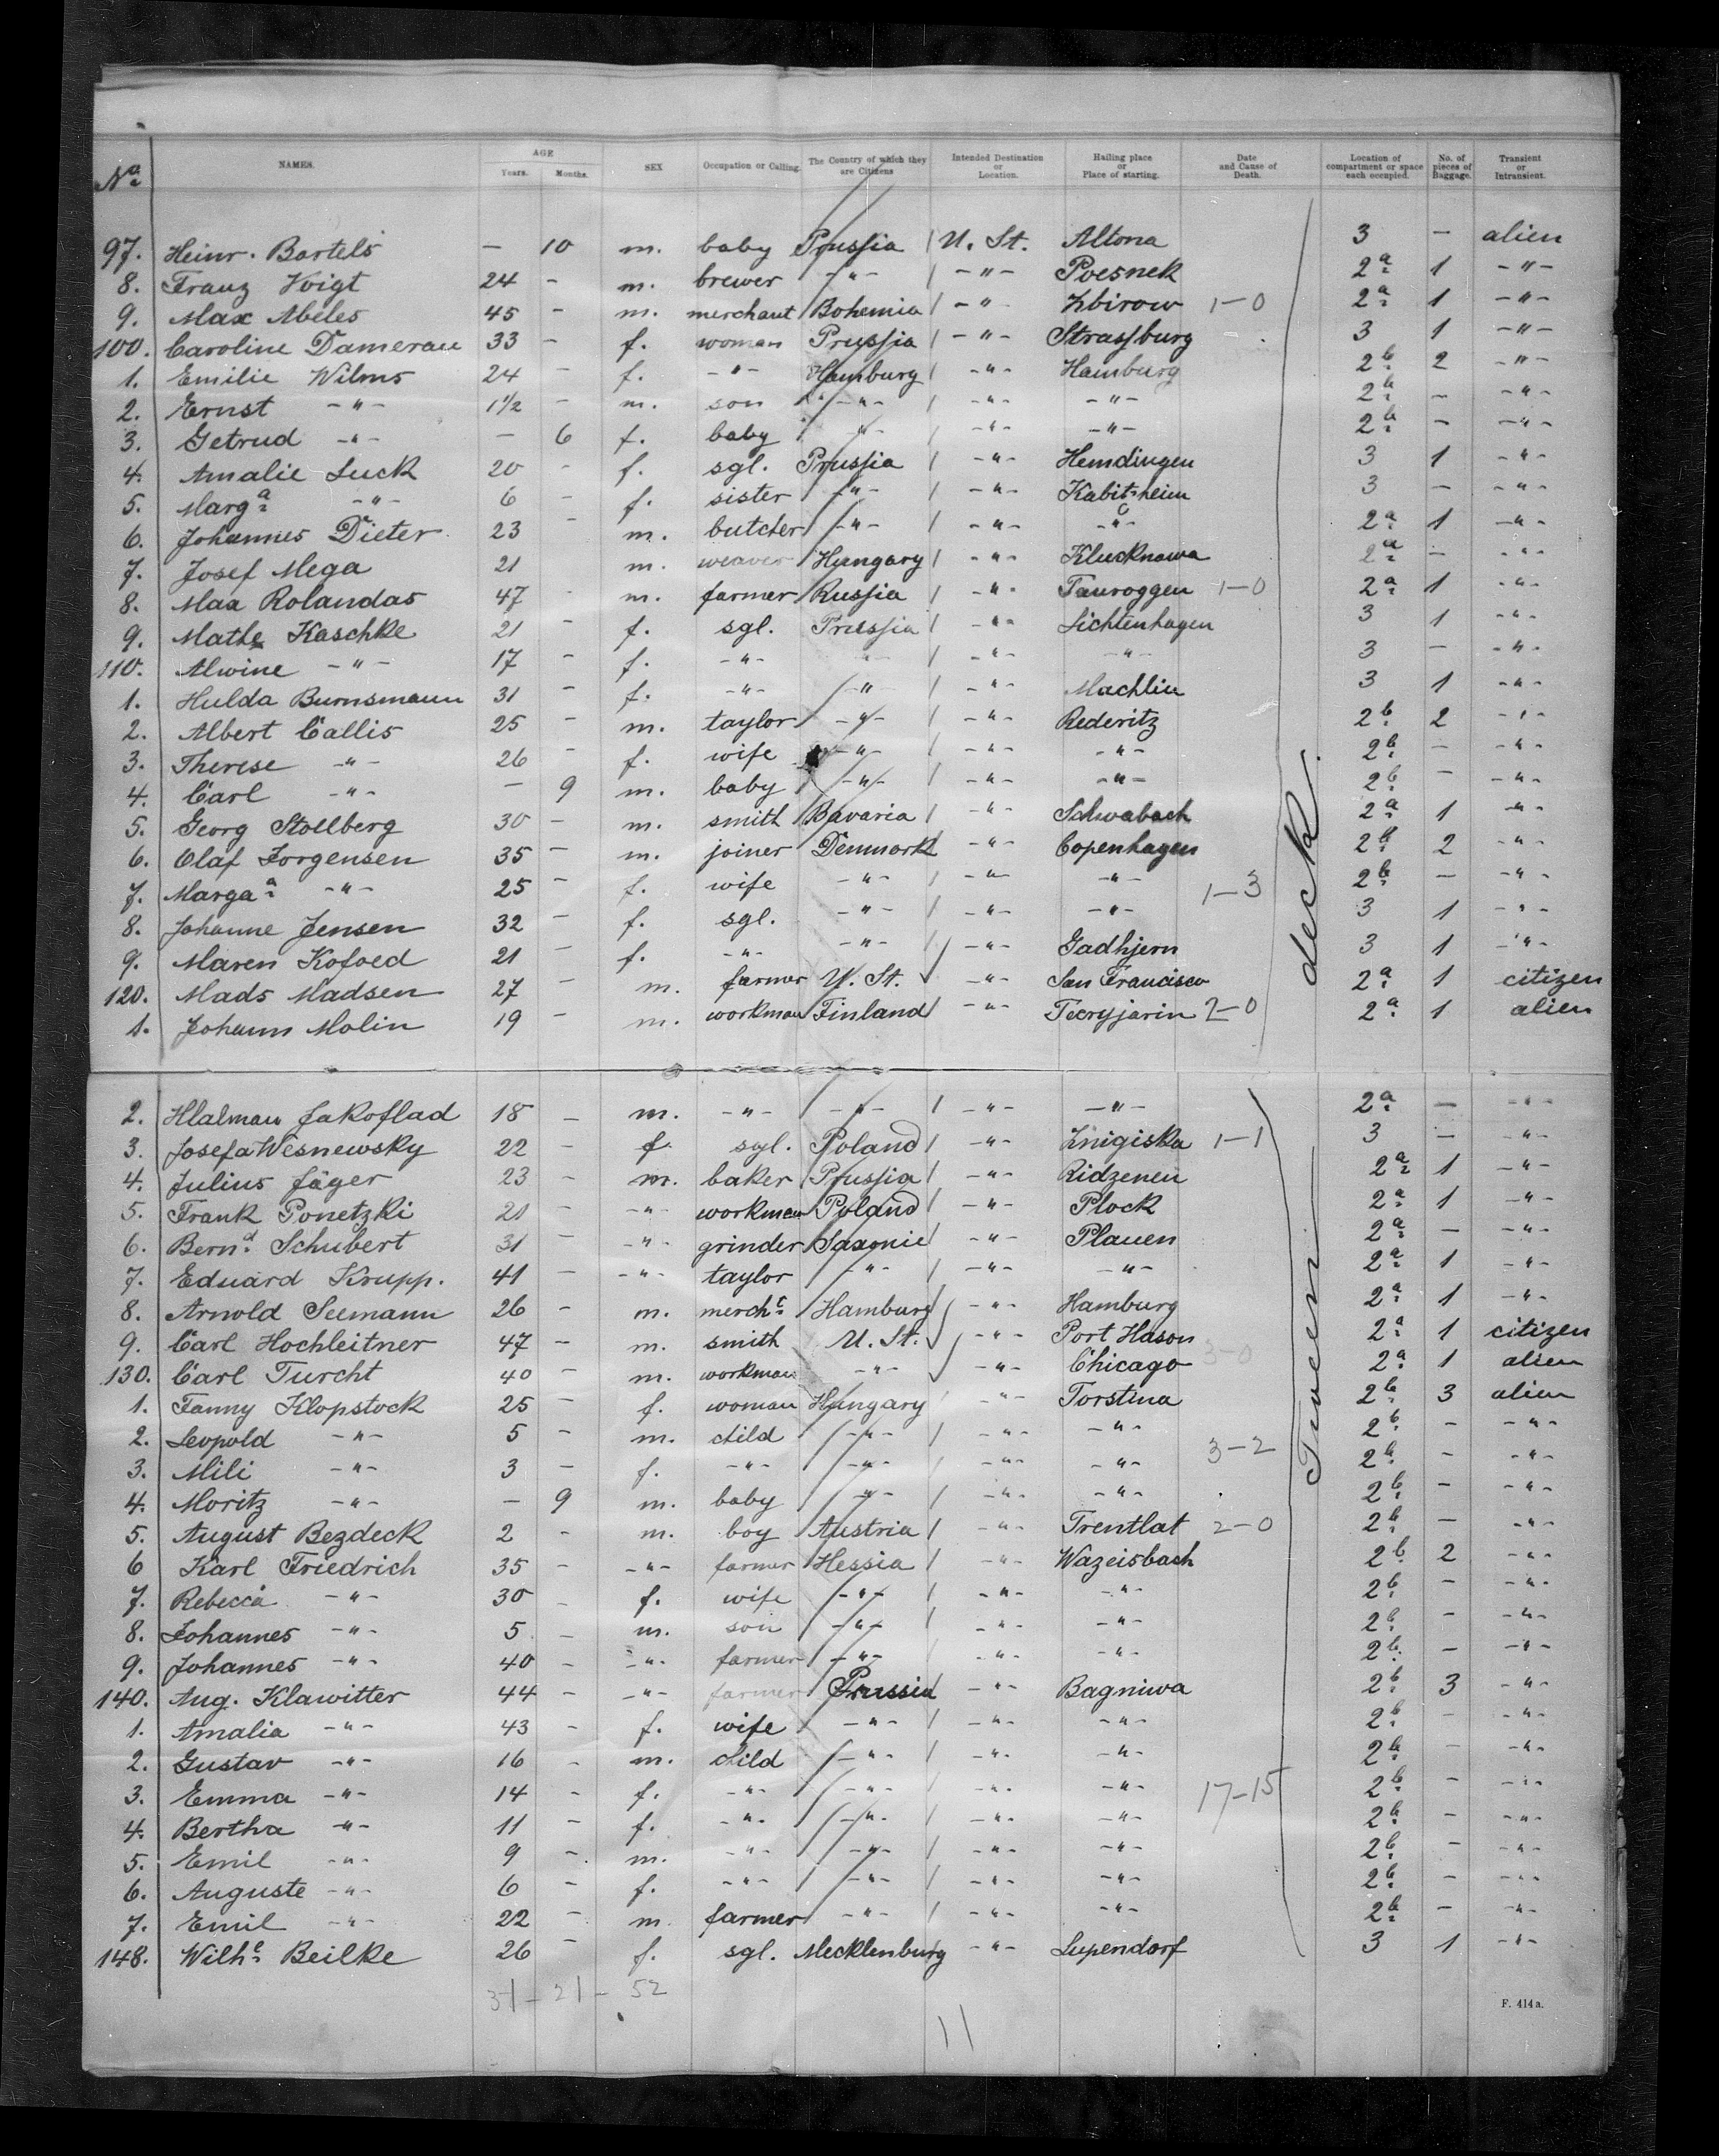 Nº NAMES. AGE Years. Months. SEX Occupation or Calling. The Country of which they are Citizens Intended Destination or Location. Hailing place or Place of starting. Date and Cause of Death. Location of compartment or space each occupied. No. of pieces of Baggage. Transient or Intransient.
97. Heinr. Bartels — 10 m. baby Prussia U. St. Altona 3 — alien
8. Franz Voigt 24 - m. brewer -"- -"- Poesnek 2a 1 -"-
9. Max Abeles 45 - m. merchant Bohemia -"- Zbirow 1-0 2a 1 -"-
100. Caroline Damerau 33 - f. woman Prussia -"- Strassburg 3 1 -"-
1. Emilie Wilms 24 - f. -"- Hamburg -"- Hamburg 2b 2 -"-
2. Ernst -"- 1½ - m. son -"- -"- -"- 2b - -"-
3. Getrud -"- - 6 f. baby -"- -"- -"- 2b - -"-
4. Amalie Luck 20 - f. sgl. Prussia -"- Hemdingen 3 1 -"-
5. Marga -"- 6 - f. sister -"- -"- Kabitzheim 3 - -"-
6. Johannes Dieter 23 - m. butcher -"- -"- -"- 2a 1 -"-
7. Josef Mega 21 m. weaver Hungary -"- Klucknawa 2a - -"-
8. Max Rolandas 47 - m. farmer Russia -"- Tauroggen 1-0 2a 1 -"-
9. Mathe Kaschke 21 - f. sgl. Prussia -"- Lichtenhagen 3 1 -"-
110. Alwine -"- 17 - f. -"- -"- -"- -"- 3 - -"-
1. Hulda Burnsmann 31 - f. -"- -"- -"- Machlin 3 1 -"-
2. Albert Callis 25 - m. taylor -"- -"- Rederitz 2b 2 -"-
3. Therese -"- 26 - f. wife -"- -"- -"- 2b - -"-
4. Carl -"- - 9 m. baby -"- -"- -"- 2b - -"-
5. Georg Stollberg 30 - m. smith Bavaria -"- Schwabach 2a 1 -"-
6. Olaf Jorgensen 35 - m. joiner Denmark -"- Copenhagen 2b 2 -"-
7. Marga -"- 25 - f. wife -"- -"- -"- 1-3 2b - -"-
8. Johanne Jensen 32 - f. sgl. -"- -"- -"- 3 1 -"-
9. Maren Kofoed 21 - f. -"- -"- -"- Gadhjern 3 1 -"-
120. Mads Madsen 27 - m. farmer U. St. -"- San Francisco 2a 1 citizen
1. Johann Molin 19 - m. workman Finland -"- Teeryjarin 2-0 2a 1 alien
2. Hlalmau Jakoflad 18 - m. -"- -"- -"- -"- 2a - -"-
3. Josefa Wesnewsky 22 - f. sgl. Poland -"- Znigiska 1-1 3 - -"-
4. Julius Jäger 23 - m. baker Prussia -"- Ridzenen 2a 1 -"-
5. Frank Ponetzki 21 - -"- workman Poland -"- Plock 2a 1 -"-
6. Bernd Schubert 31 - -"- grinder Saxonie -"- Plauen 2a - -"-
7. Eduard Krupp. 41 - -"- taylor -"- -"- -"- 2a 1 -"-
8. Arnold Seemann 26 - m. mercht Hamburg -"- Hamburg 2a 1 -"-
9. Carl Hochleitner 47 - m. smith U. St. -"- Port Hason 2a 1 citizen
130. Carl Turcht 40 - m. workman -"- -"- Chicago 3-0 2a 1 alien
1. Fanny Klopstock 25 - f. woman Hungary -"- Torstina 2b 3 alien
2. Leopold -"- 5 - m. child -"- -"- -"- 2b - -"-
3. Mili -"- 3 - f. -"- -"- -"- -"- 3-2 2b - -"-
4. Moritz -"- - 9 m. baby -"- -"- -"- 2b - -"-
5. August Bezdeck 2 - m. boy Austria -"- Trentlat 2-0 2b - -"-
6 Karl Friedrich 35 - -"- farmer Hessia -"- Wazeisbach 2b 2 -"-
7. Rebecca -"- 30 - f. wife -"- -"- -"- 2b - -"-
8. Johannes -"- 5 - m. son -"- -"- -"- 2b - -"-
9. Johannes -"- 40 - -"- farmer -"- -"- -"- 2b - -"-
140. Aug. Klawitter 44 - -"- farmer Prussia -"- Bagniwa 2b 3 -"-
1. Amalia -"- 43 - f. wife -"- -"- -"- 2b - -"-
2. Gustav -"- 16 - m. child -"- -"- -"- 2b - -"-
3. Emma -"- 14 - f. -"- -"- -"- -"- 17-15 2b - -"-
4. Bertha -"- 11 - f. -"- -"- -"- -"- 2b - -"-
5. Emil -"- 9 - m. -"- -"- -"- -"- 2b - -"-
6. Auguste -"- 6 - f. -"- -"- -"- -"- 2b - -"-
7. Emil -"- 22 - m. farmer -"- -"- -"- 2b - -"-
148. Wilhe Beilke 26 - f. sgl. Mecklenburg -"- Lupendorf 3 1 -"-
31-21-52
11
F. 414a.
deck.